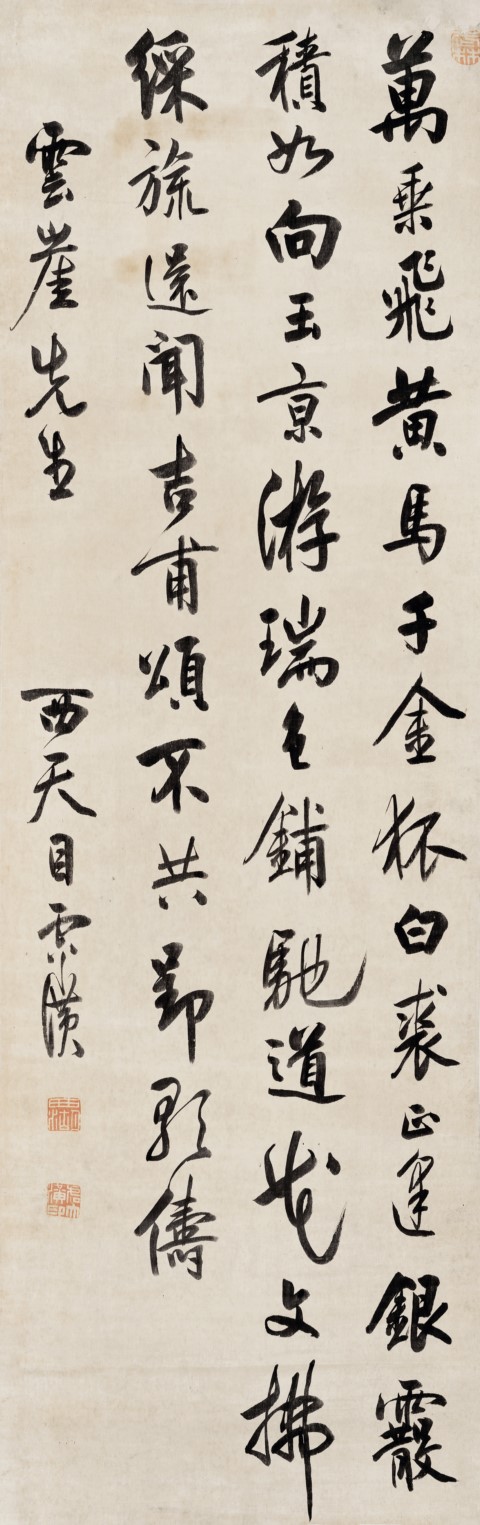 萬乘飛黃馬千金狐白裘正逢銀霰
積如向玉京游瑞色鋪馳道花文拂
綵旒還聞吉甫頌不共郢歌儔
雲崖先生
西天目潢